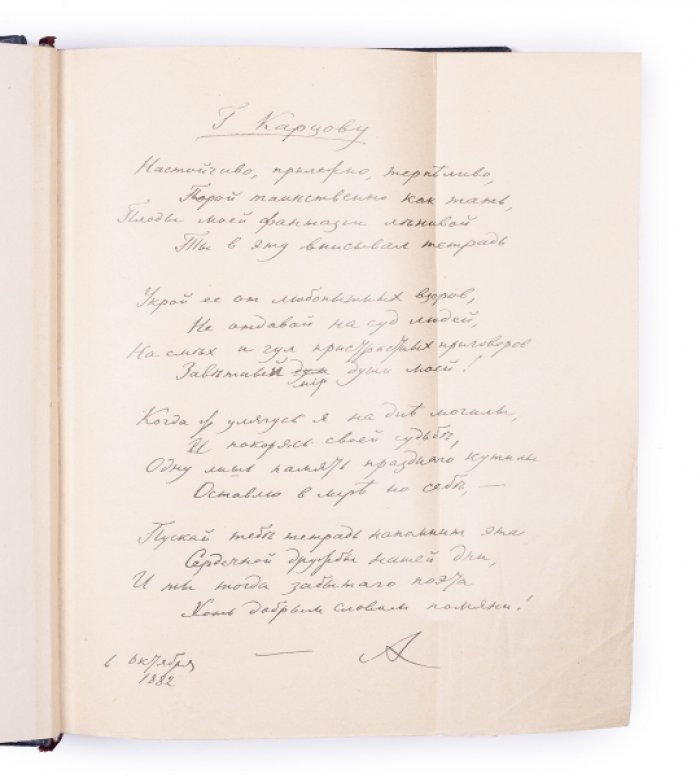 Г Карцову
Настойчиво, прилежно, терпѣливо,
Порой таинственно какъ тать,
Плоды моей фантазіи лѣнивой
Ты в эту вписывал тетрадь
Укрой ее от любопытных взоров,
Не отдавай на суд людей,
На смѣх и гул пристрастных приговоров
Завѣтный мір души моей!
Когда ж улягусь я на днѣ могилы,
И покорясь своей судьбѣ,
Одну лишь память праздного кутилы
Оставлю в мірѣ по себѣ, —
Пускай тебѣ тетрадь напомнит эта
Сердечной дружбы нашей дни,
И ты тогда забытаго поэта
Хоть добрым словом помяни!
6 октября
1882
— А